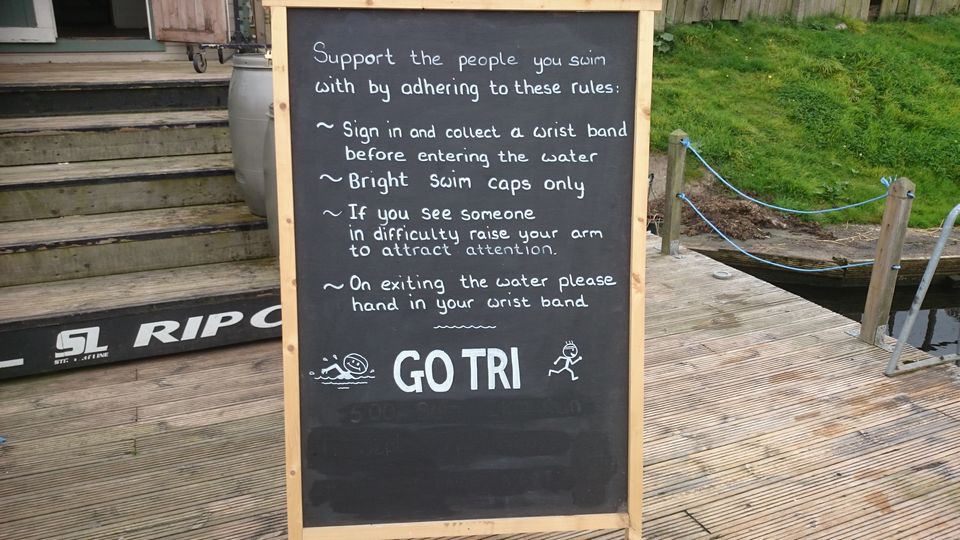 Support the people you swim
with by adhering to these rules:
~ Sign in and collect a wrist band
before entering the water
~ Bright swim caps only
~ If you see someone
in difficulty raise your arm
to attract attention.
~ On exiting the water please
hand in your wrist band
GO TRI
SL
RIP C